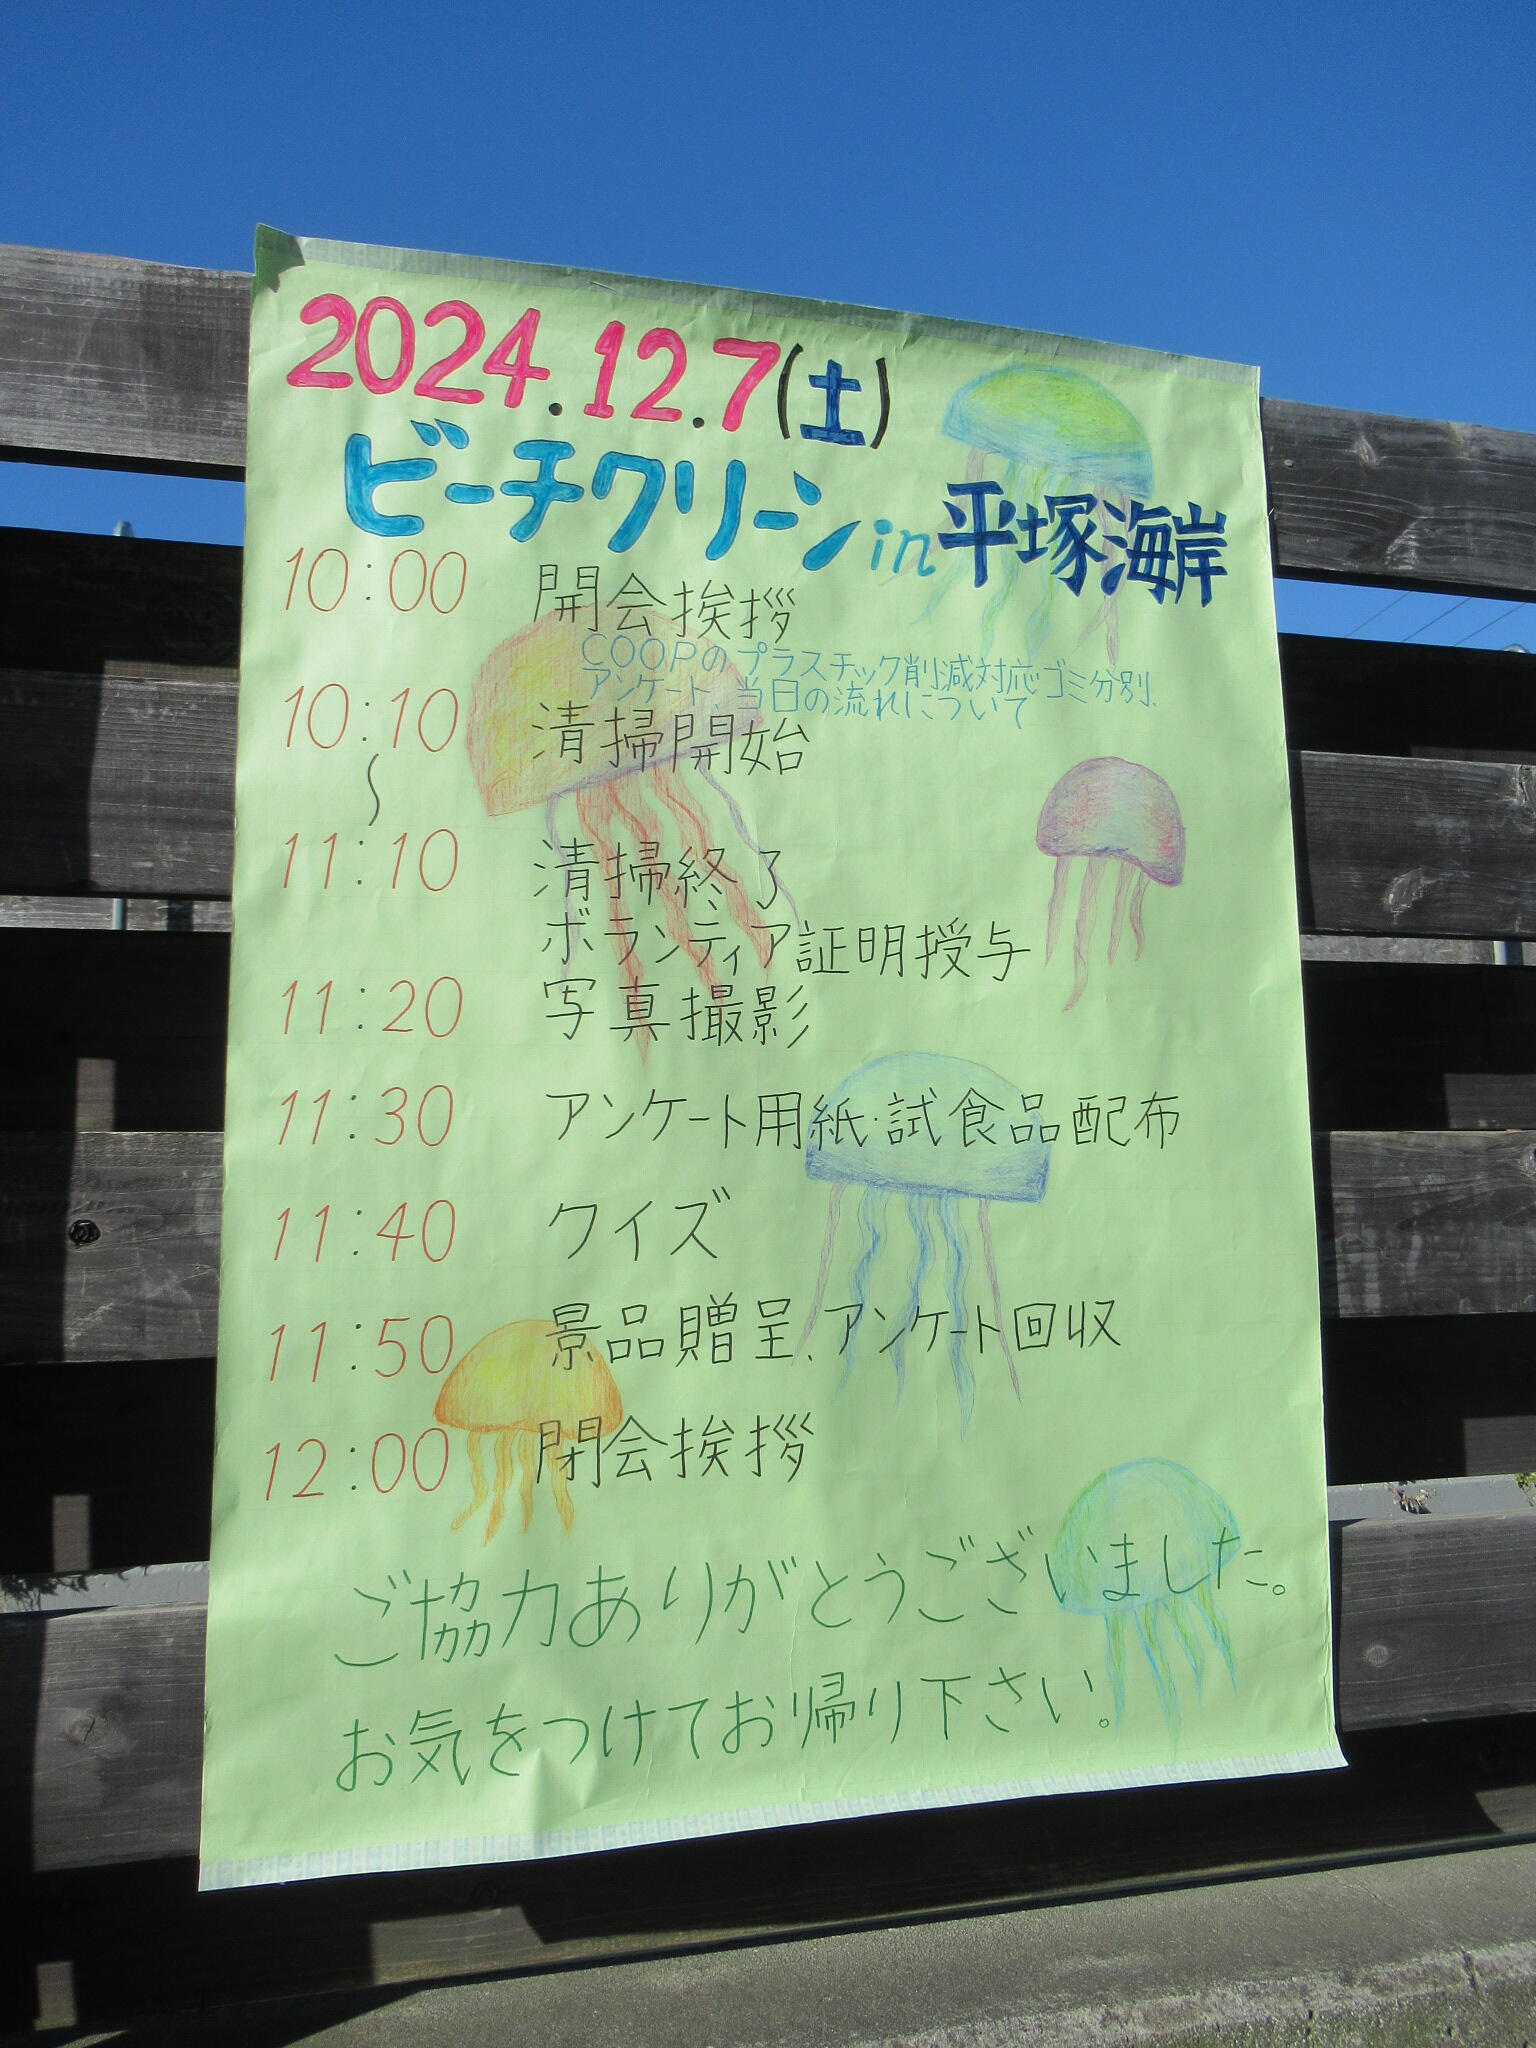 2024.12.7(土)
ビーチクリーン in 平塚海岸
10:00 開会挨拶
COOPのプラスチック削減対応ゴミ分別、
アンケート、当日の流れについて
10:10 清掃開始
〜
11:10 清掃終了
ボランティア証明授与
11:20 写真撮影
11:30 アンケート用紙・試食品配布
11:40 クイズ
11:50 景品贈呈、アンケート回収
12:00 閉会挨拶
ご協力ありがとうございました。
お気をつけてお帰り下さい。